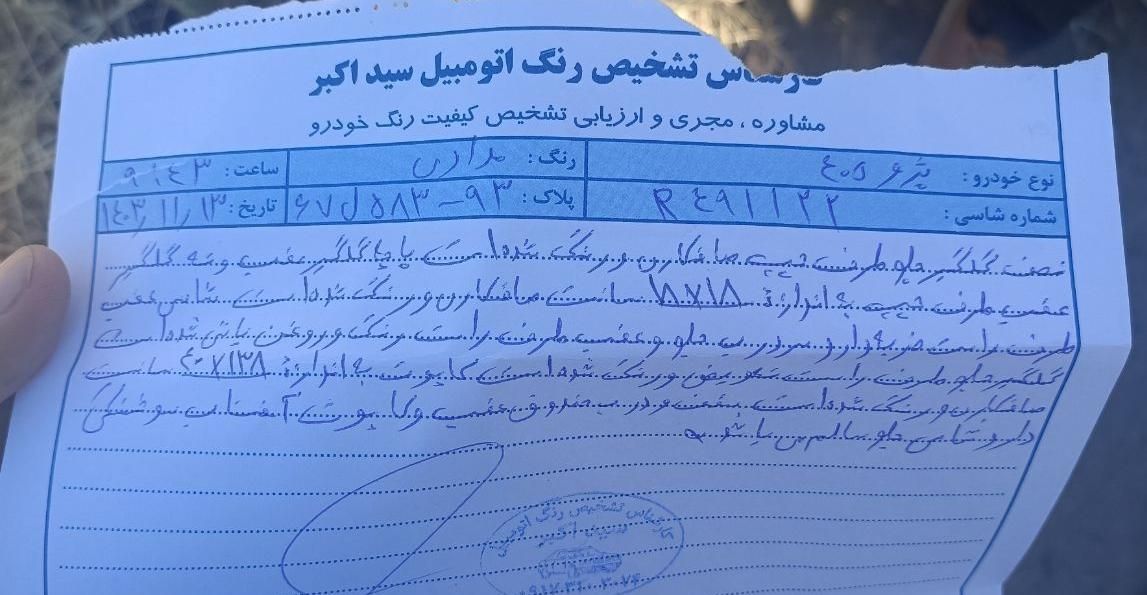 کارشناس تشخیص رنگ اتومبیل سید اکبر
مشاوره ، مجری و ارزیابی تشخیص کیفیت رنگ خودرو
نوع خودرو : پژو ۴۰۵ رنگ : مدادی ساعت : ۹:۴۳
شماره شاسی : R۴۹۱۱۲۲ پلاک : ۹۳-۵۸۳ل۶۷ تاریخ : ۱۴۰۳/۱۱/۱۳
نصف گلگیر جلو طرف چپ صافکاری و رنگ شده است پاچا گلگیر عقب و ته گلگیر
عقب طرف چپ به اندازه ۱۸×۱۸ سانت صافکاری و رنگ شده است شاسی عقب
طرف راست ضربه دارد و درب جلو و عقب طرف راست رنگ و روغن پاش شده است
گلگیر جلو طرف راست تعویض و رنگ شده است کاپوت به اندازه ۴۰×۱۳۸ سانت
صافکاری و رنگ شده است سقف و درب صندوق عقب و کاپوت آفتاب سوختگی
دارد شاسی جلو سالم می باشد
کارشناس تشخیص رنگ اتومبیل
سید اکبر